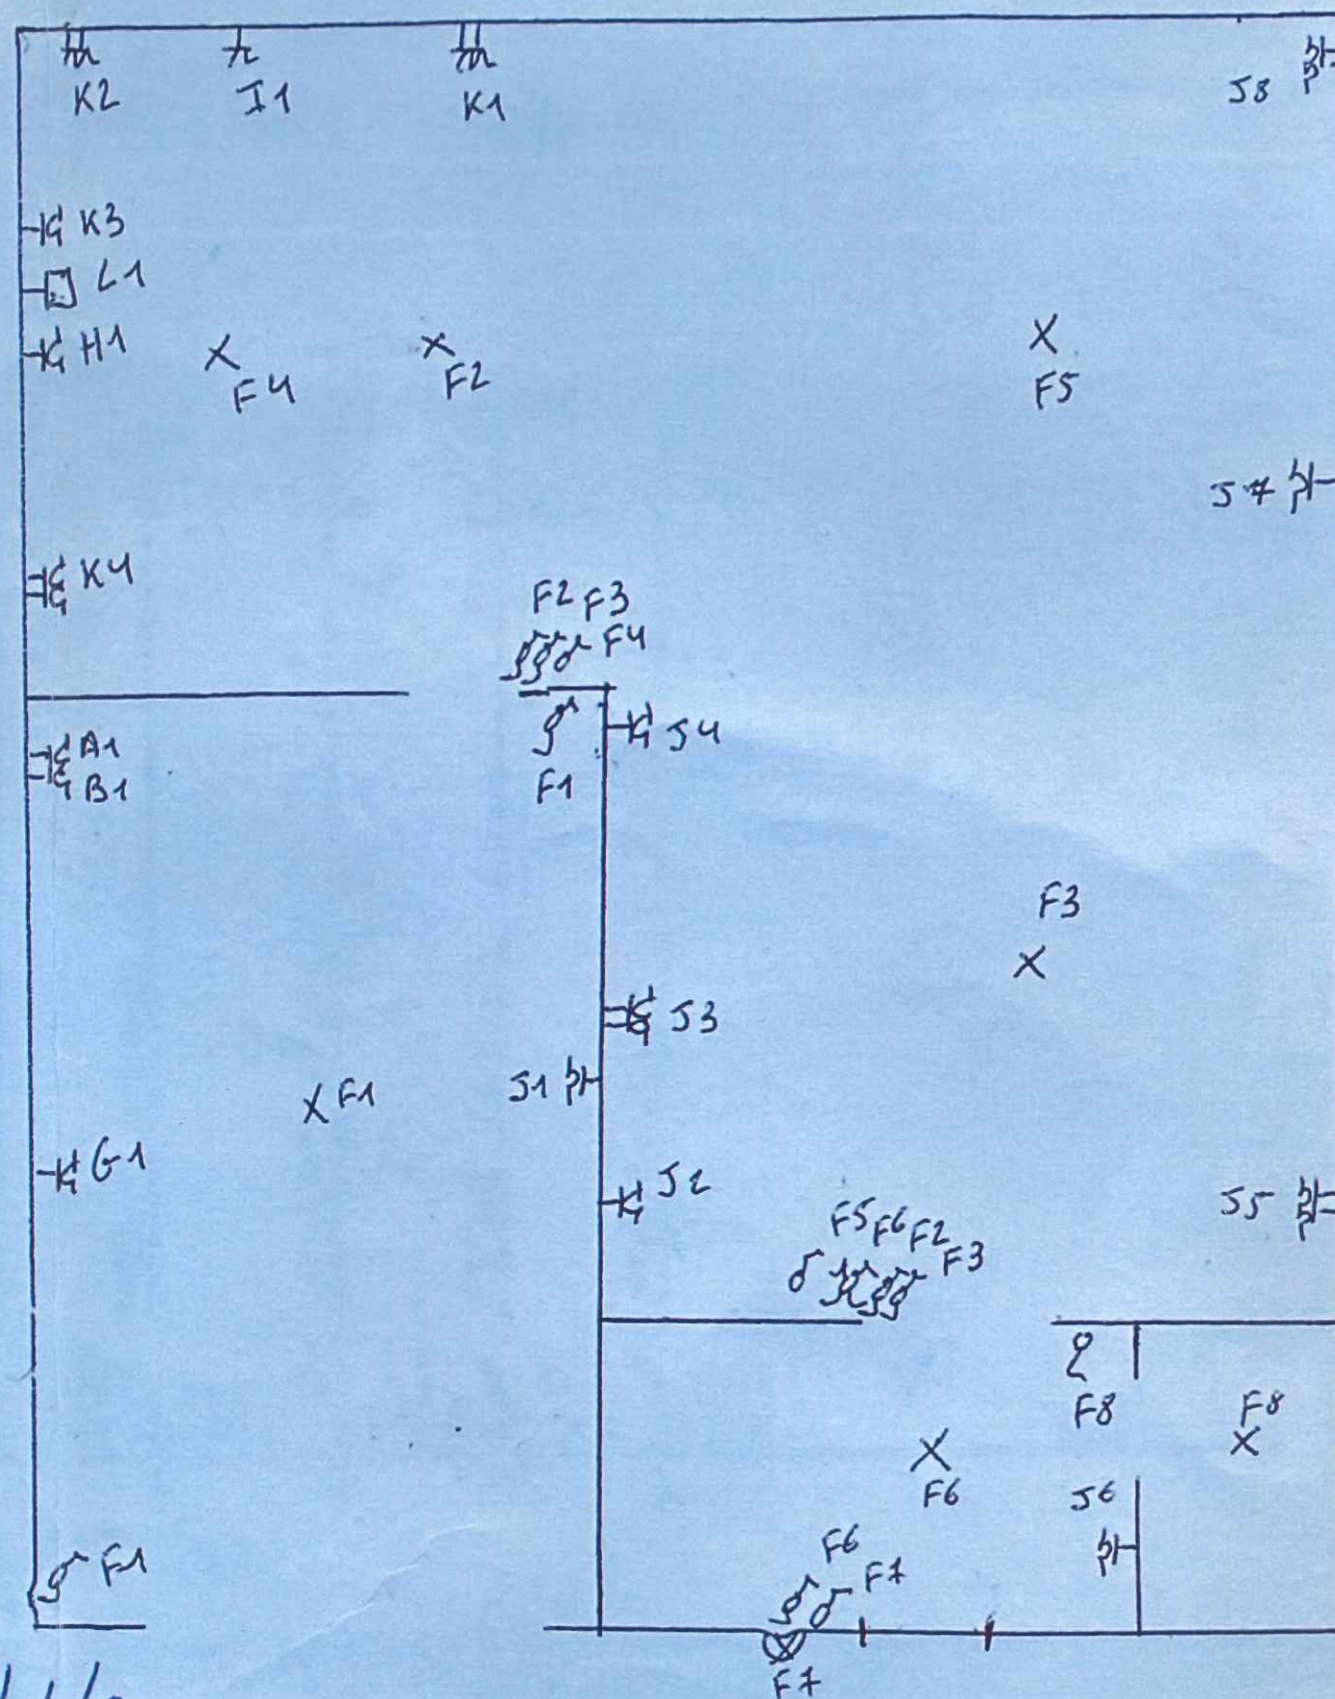 K2 I1 K1 J8
K3
L1
H1
F4 F2 F5
J7
K4
F2 F3
F4
A1
B1
J4
F1
F3
J3
J1
F1
G1
J2
J5
F5 F6 F2
F3
F8 F8
F6
J6
F6
F1
F7
F7